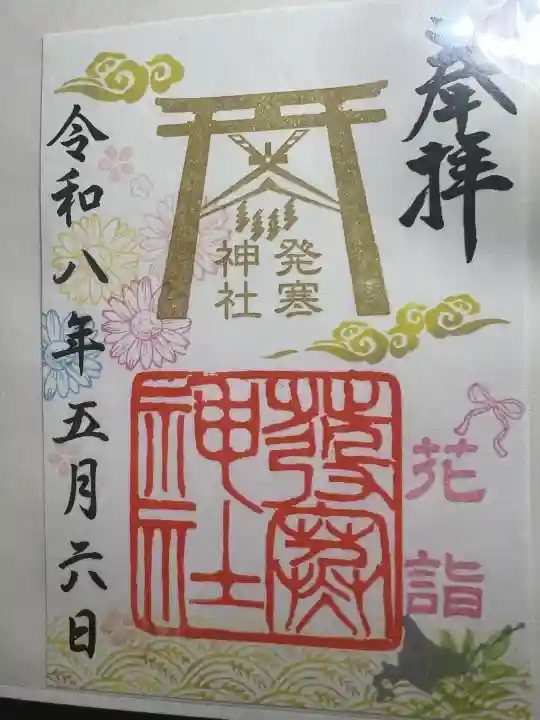 奉拝
発寒
神社
發寒
神社
花詣
令和八年五月六日